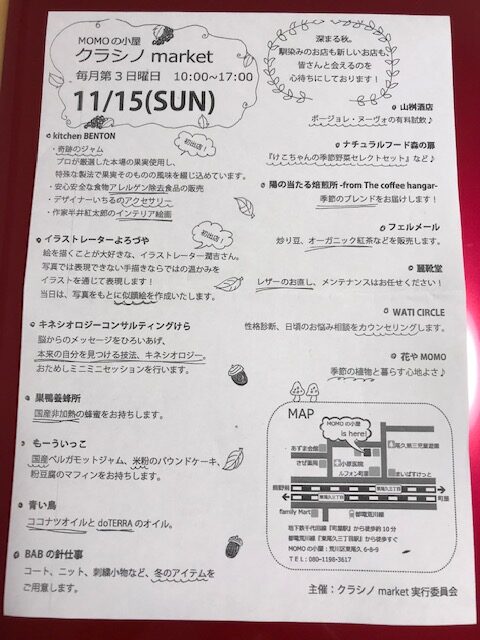 MOMOの小屋
クラシノ market
毎月第3日曜日 10:00~17:00
11/15(SUN)
深まる秋。
馴染みのお店も新しいお店も
皆さんと会えるのを
心待ちにしております！
kitchen BENTON
初出店！
・奇跡のジャム
プロが厳選した本場の果実使用し、
特殊な製法で果実そのものの風味を綴じ込めています。
・安心安全な食物アレルゲン除去食品の販売
・デザイナーいちるのアクセサリー
・作家半井紅太郎のインテリア絵画
イラストレーターよろづや
初出店！
絵を描くことが大好きな、イラストレーター潤吉さん。
写真では表現できない手描きならではの温かみを
イラストを通じて表現します！
当日は、写真をもとに似顔絵を作成いたします。
キネシオロジーコンサルティングけら
脳からのメッセージをひろいあげ、
本来の自分を見つける技法、キネシオロジー。
おためしミニミニセッションを行います。
巣鴨養蜂所
国産非加熱の蜂蜜をお持ちします。
もーういっこ
国産ベルガモットジャム、米粉のパウンドケーキ、
粉豆腐のマフィンをお持ちします。
青い鳥
ココナツオイルと doTERRA のオイル。
BAB の針仕事
コート、ニット、刺繍小物など、冬のアイテムを
ご用意します。
山桝酒店
ボージョレ・ヌーヴォの有料試飲♪
ナチュラルフード森の扉
『けこちゃんの季節野菜セレクトセット』など♪
陽の当たる焙煎所 -from The coffee hangar-
季節のブレンドをお届けします！
フェルメール
炒り豆、オーガニック紅茶などを販売します。
麗靴堂
レザーのお直し、メンテナンスはお任せください！
WATI CIRCLE
性格診断、日頃のお悩み相談をカウンセリングします。
花や MOMO
季節の植物と暮らす心地よさ♪
MAP
MOMOの小屋
is here!
あずま会館
尾久第三児童遊園
さぜ薬局
小原医院
ルフォン町屋
まいばすけっと
熊野前
東尾久三丁目
東尾久三丁目
町屋
family Mart
都電荒川線
地下鉄千代田線『町屋駅』から徒歩約10分
都電荒川線『東尾久三丁目駅』から徒歩すぐ
MOMOの小屋：荒川区東尾久 6-8-9
TEL：080-1198-3617
主催：クラシノ market 実行委員会